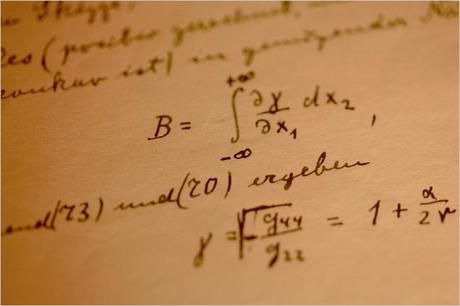 Skizze,
(positiv gerechnet,
konkav ist) in genügender Nä
B = ∫_{-∞}^{+∞} ∂γ/∂x₁ dx₂ ,
end (73) und (70) ergeben
γ = √(-g₄₄/g₂₂) = 1 + α/2r